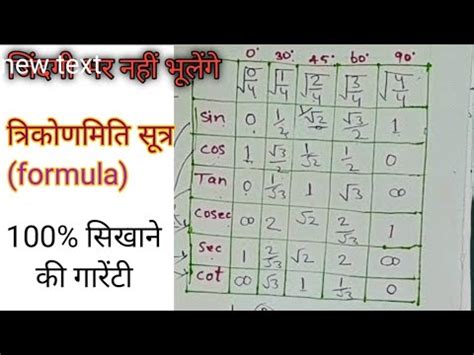 new text
जिंदगी भर नहीं भूलेंगे
त्रिकोणमिति सूत्र
(formula)
100% सिखाने
की गारेंटी
0° 30° 45° 60° 90°
√0/4 √1/4 √2/4 √3/4 √4/4
sin 0 1/2 1/√2 √3/2 1
cos 1 √3/2 1/√2 1/2 0
Tan 0 1/√3 1 √3 ∞
cosec ∞ 2 √2 2/√3 1
Sec 1 2/√3 √2 2 ∞
cot ∞ √3 1 1/√3 0